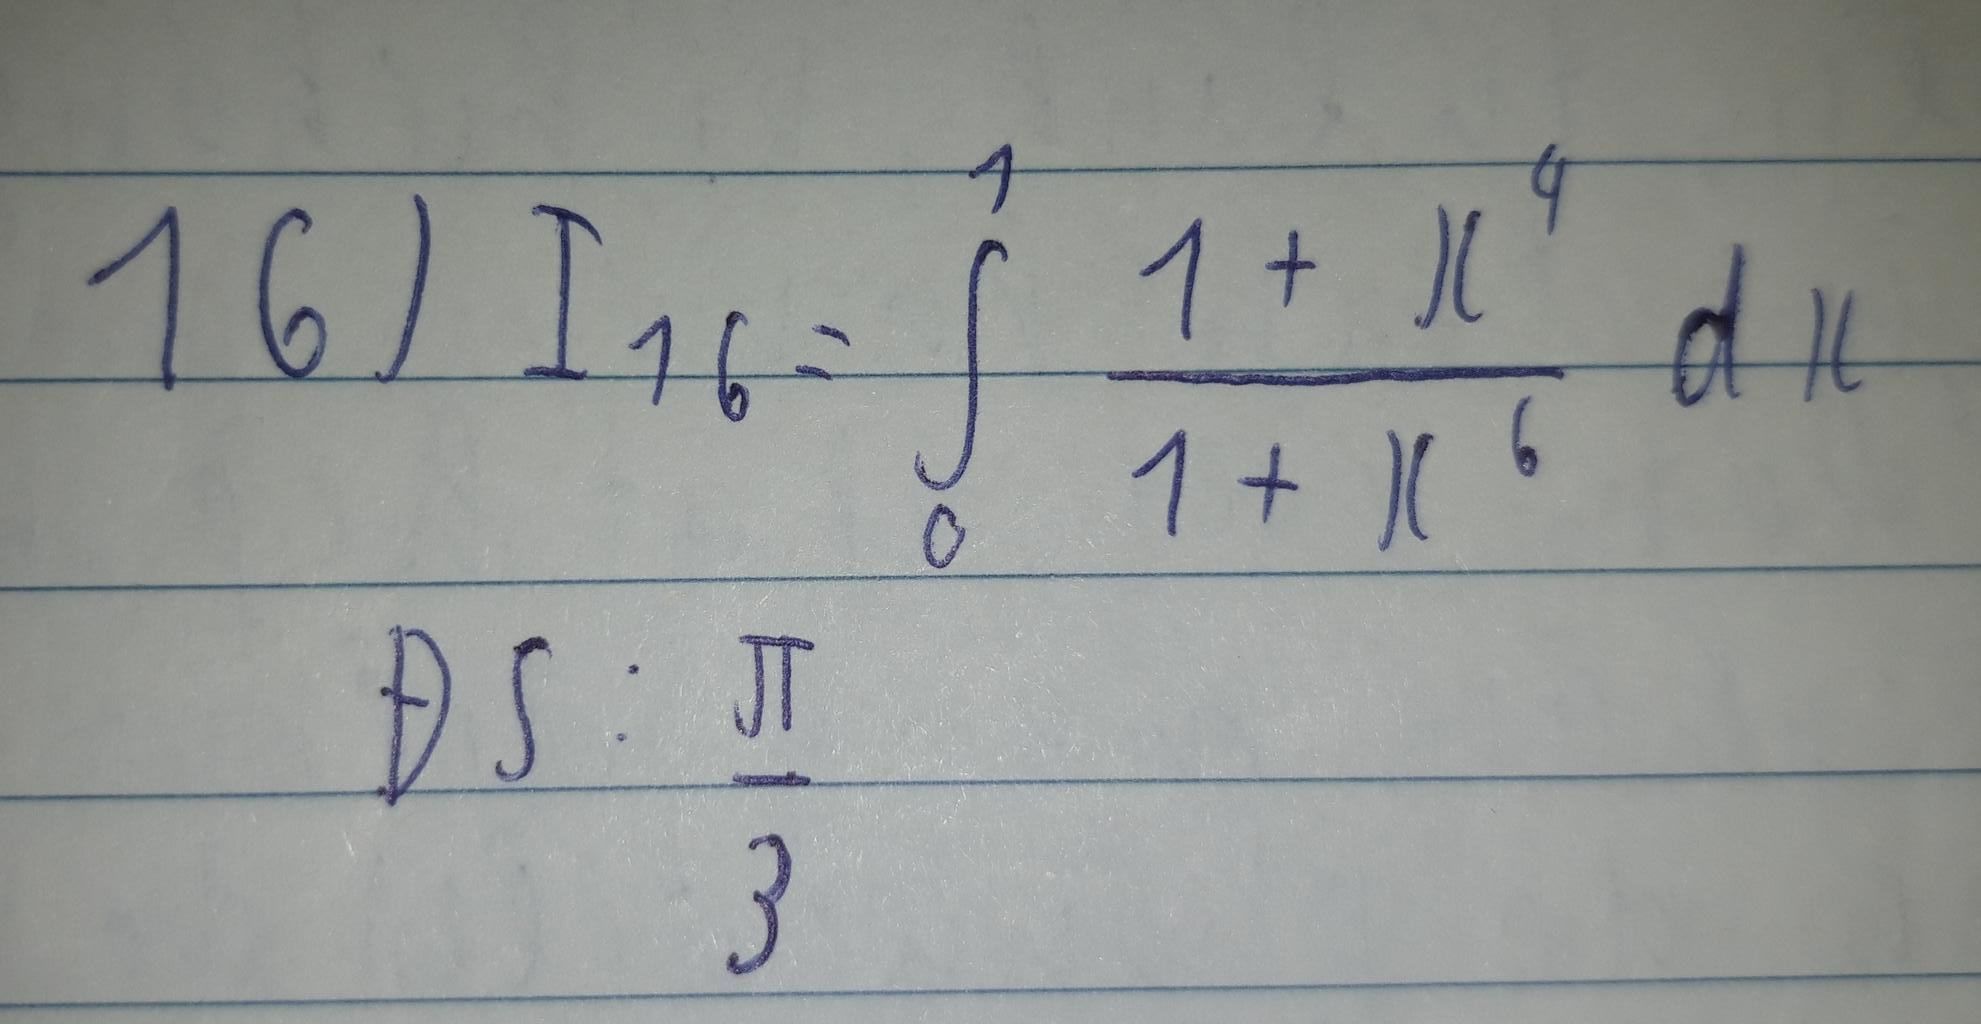 16) I₁₆ = ∫₀¹ (1 + x⁴)/(1 + x⁶) dx
ĐS : π/3